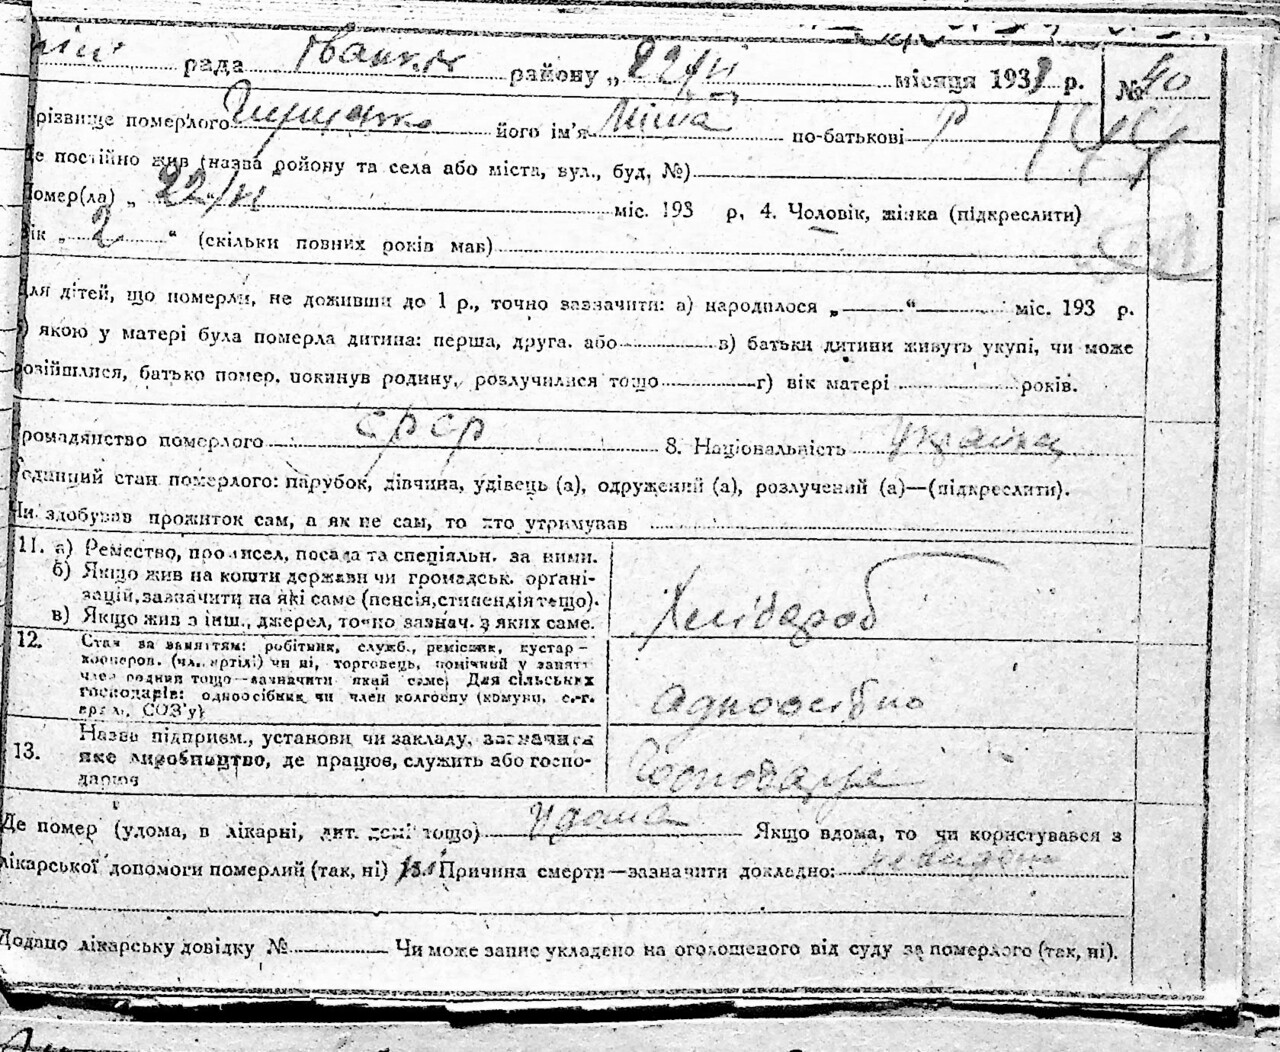 рада районну „22/VI місяця 1933 р. № 40
різвище померлого його ім'я Міша по-батькові Р
де постійно жив (назва району та села або міста, вул., буд, №)
Помер(ла) „ 22/VI міс. 193 р, 4. Чоловік, жінка (підкреслити)
Вік „ 2 “ (скільки повних років мав)
Для дітей, що померли, не доживши до 1 р., точно зазначити: а) народилося „ “ міс. 193 р.
якою у матері була померла дитина: перша, друга. або в) батьки дитини живуть укупі, чи може
розійшлися, батько помер. покинув родину, розлучилися тощо г) вік матері років.
громадянство померлого СРСР 8. Національність українец
Родинний стан померлого: парубок, дівчина, удівець (а), одружений (а), розлучений (а)—(підкреслити).
Чи здобував прожиток сам, а як не сам, то хто утримував
11. а) Ремество, промисел, посада та спеціяльн. за ними.
б) Якщо жив на кошти держави чи громадськ. органі-
зацій, зазначити на які саме (пенсія, стипендія тощо).
в) Якщо жив з інш., джерел, точно зазнач. з яких саме.
Хлібороб
12. Стан за заняттям: робітник, служб., ремісник, кустар-
кооперов. (чл. артілі) чи ні, торговець, помічний у занятт
член родини тощо—зазначити який саме; Для сільських
господарів: одноосібник чи член колгоспу (комуни, с.-г.
артіл, СОЗ'у)
одноосібно
13. Назва підприєм., установи чи закладу, зазначися
яке виробництво, де працює, служить або госпо-
дарює
Господарує
Де помер (удома, в лікарні, дит. домі тощо) удома Якщо вдома, то чи користувався з
лікарської допомоги померлий (так, ні) Причина смерти—зазначити докладно: невидом
Додано лікарську довідку № Чи може запис укладено на оголошеного від суду за померлого (так, ні).